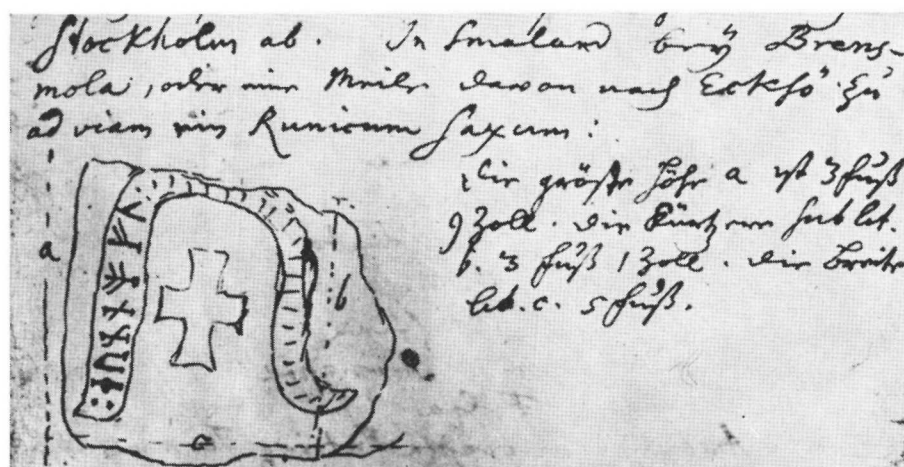 Stockholm ab. In Smaland beÿ Brens-
mola, oder eine Meile davon nach Ecksö zu
ad viam ein Runicum saxum:
die größte höhe a ist 3 fuß
9 Zoll. die Kürtzere sub lit.
b. 3 fuß 1 Zoll. die breite
lit. c. 5 fuß.
a
b
c